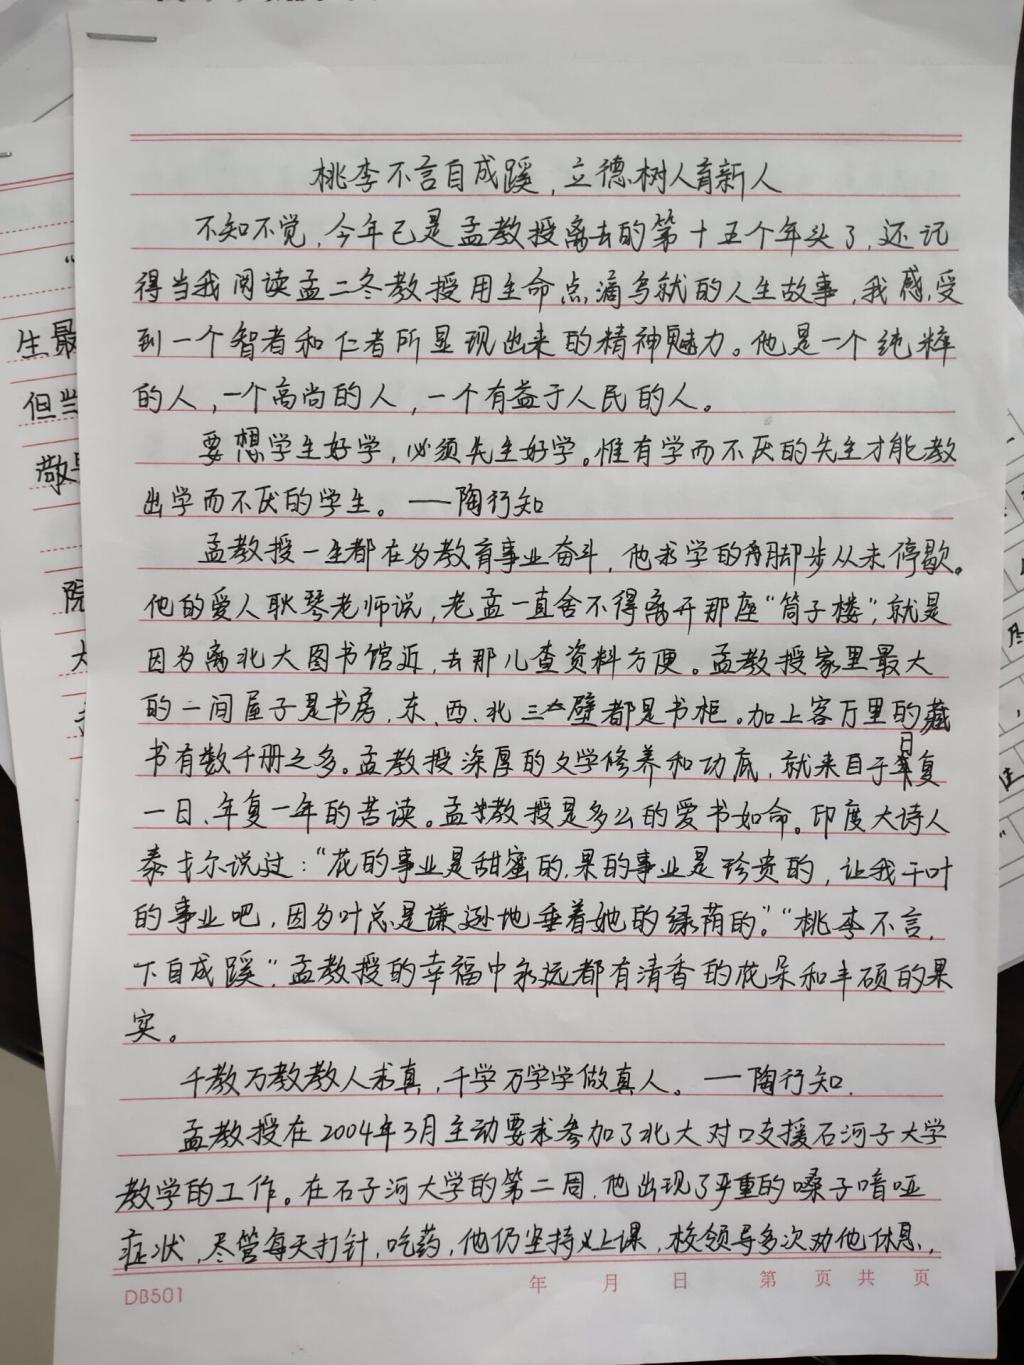 桃李不言自成蹊，立德树人育新人
不知不觉，今年已是孟教授离去的第十五个年头了，还记
得当我阅读孟二冬教授用生命点滴写就的人生故事，我感受
到一个智者和仁者所显现出来的精神魅力。他是一个纯粹
的人，一个高尚的人，一个有益于人民的人。
要想学生好学，必须先生好学。惟有学而不厌的先生才能教
出学而不厌的学生。——陶行知
孟教授一生都在为教育事业奋斗，他求学的脚步从未停歇。
他的爱人耿琴老师说，老孟一直舍不得离开那座“筒子楼”，就是
因为离北大图书馆近，去那儿查资料方便。孟教授家里最大
的一间屋子是书房，东、西、北三壁都是书柜。加上客厅里的藏
书有数千册之多。孟教授深厚的文学修养和功底，就来自于日复
一日、年复一年的苦读。孟教授是多么的爱书如命。印度大诗人
泰戈尔说过：“花的事业是甜蜜的，果的事业是珍贵的，让我干叶
的事业吧，因为叶总是谦逊地垂着她的绿荫的。”“桃李不言，
下自成蹊”，孟教授的幸福中永远都有清香的花朵和丰硕的果
实。
千教万教教人求真，千学万学学做真人。——陶行知.
孟教授在2004年3月主动要求参加了北大对口支援石河子大学
教学的工作。在石子河大学的第二周，他出现了严重的嗓子喑哑
症状，尽管每天打针，吃药，他仍坚持上课，校领导多次劝他休息，
DB501
年 月 日 第 页 共 页
生最
但当
敬
院